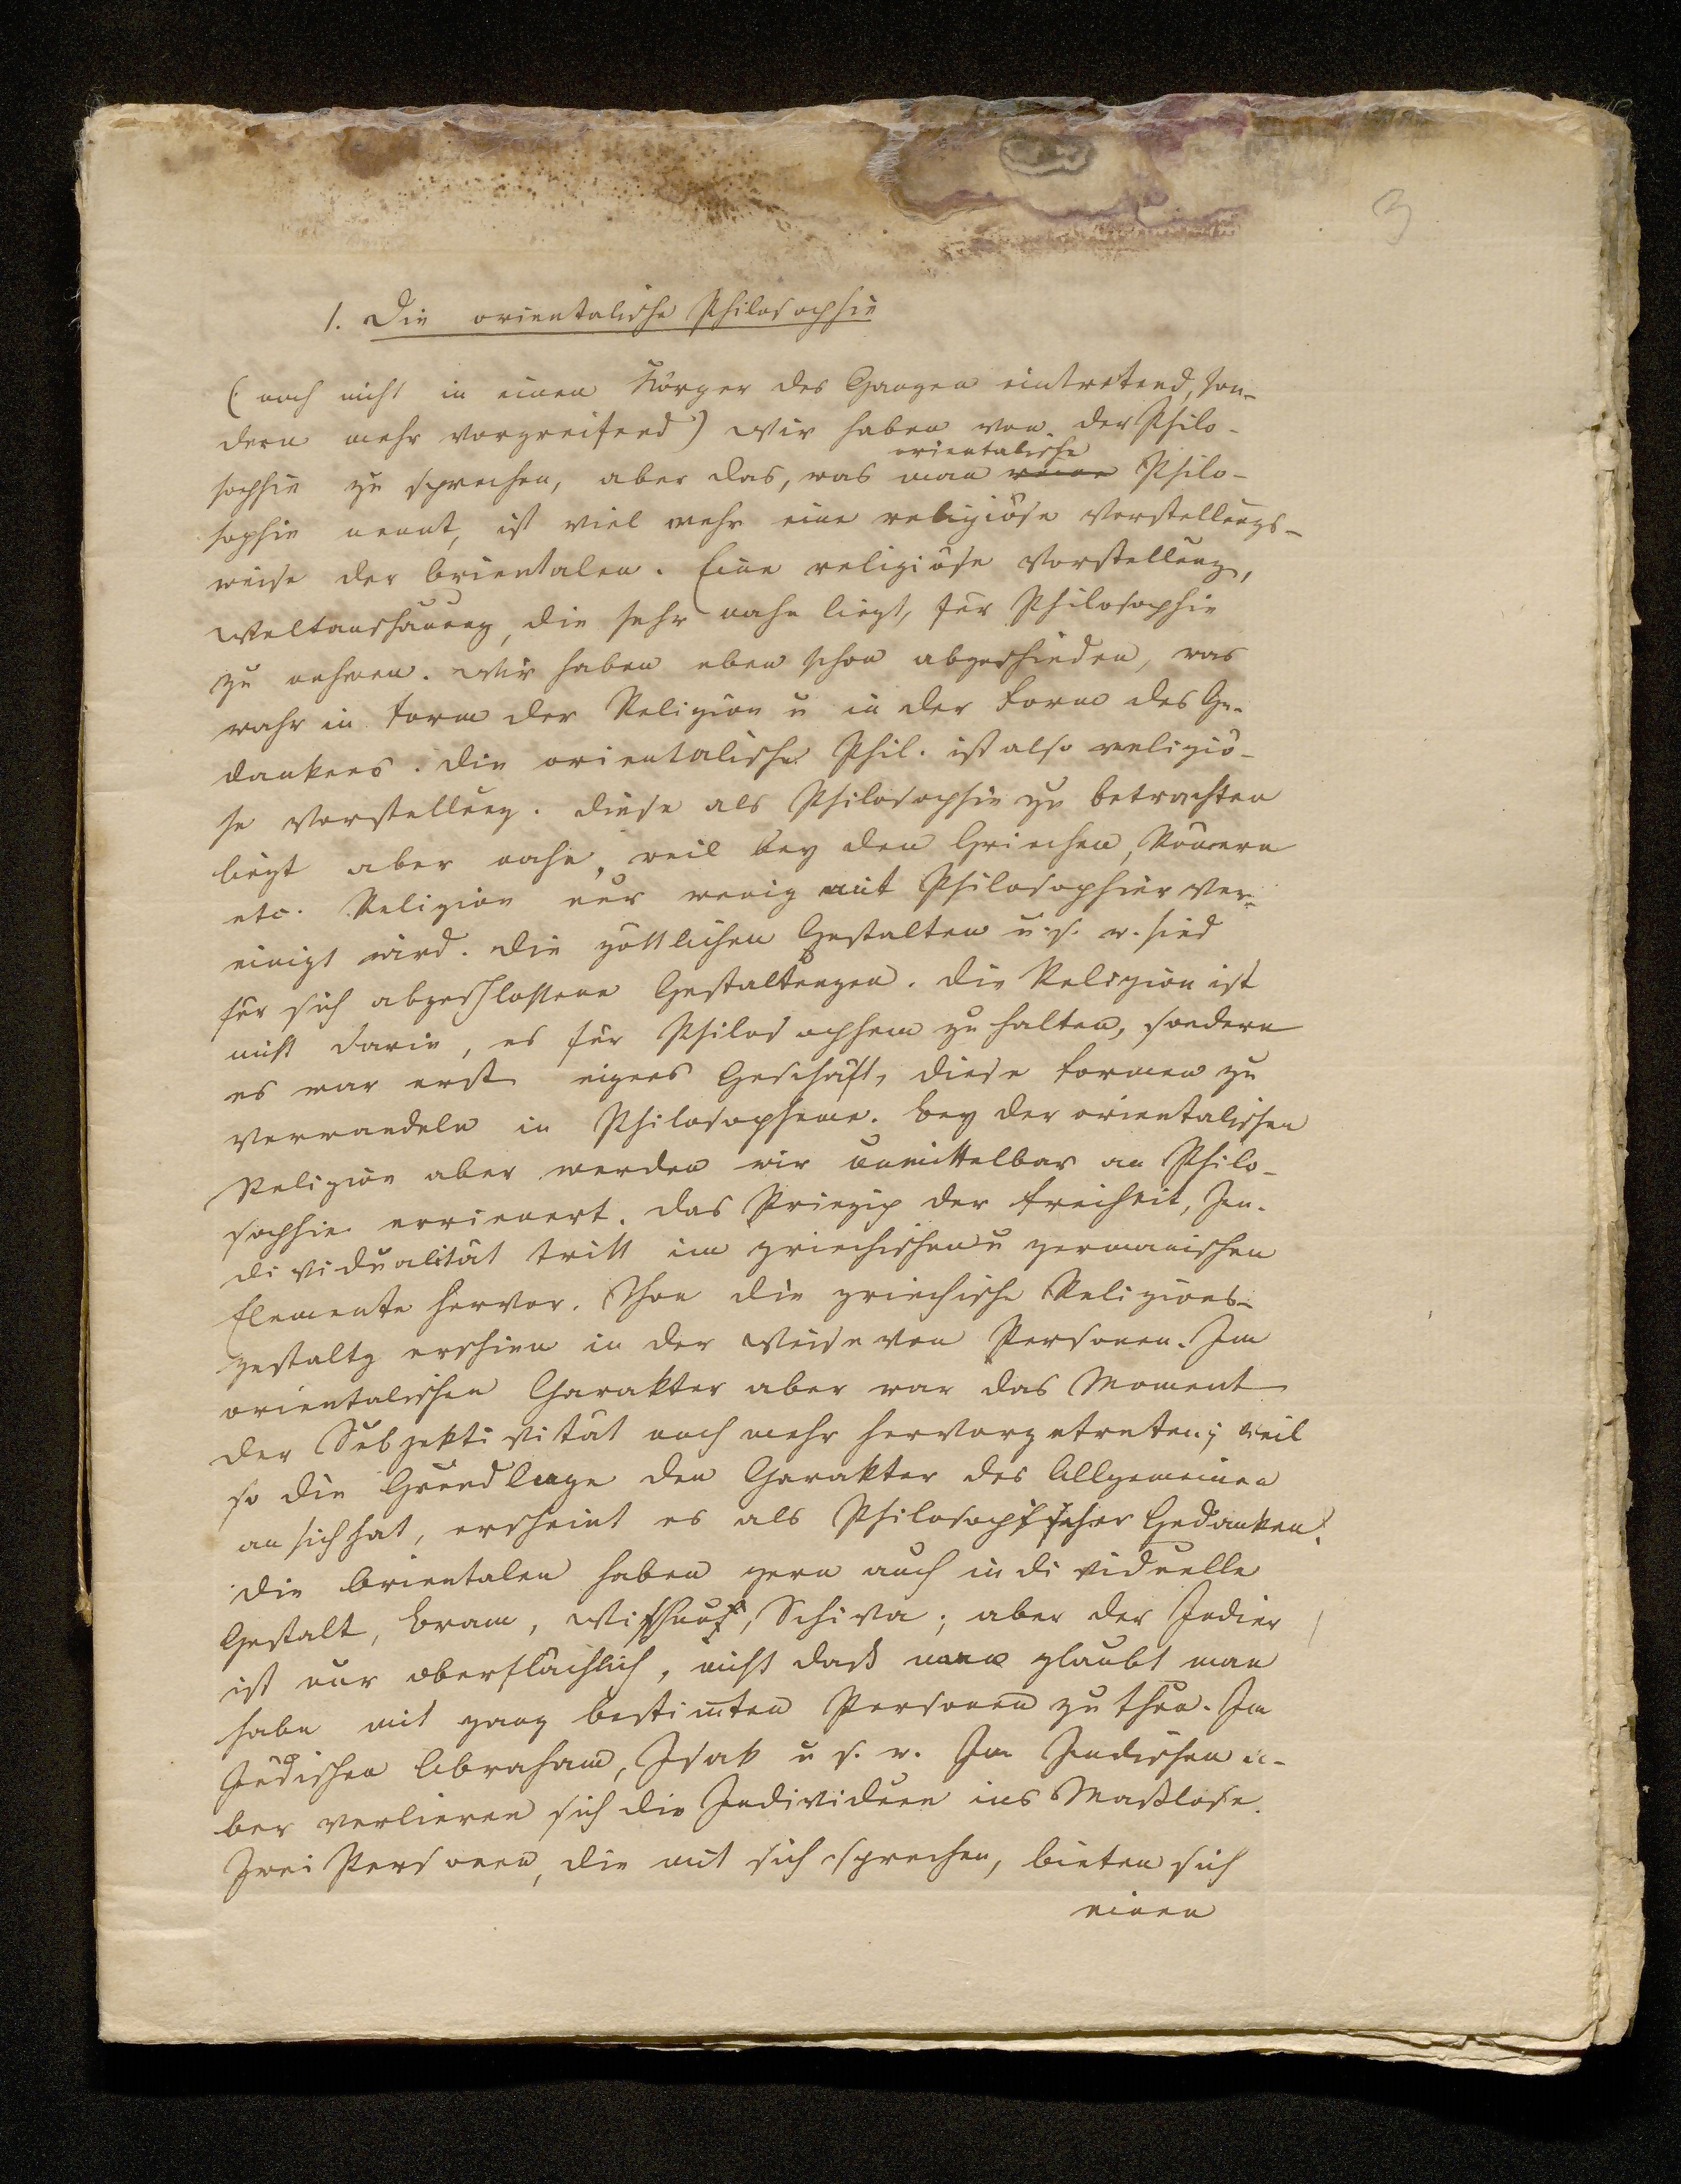 3
1. Die orientalische Philosophie
(noch nicht in einen Körper des Ganzen eintretend, son-
dern mehr vorgreifend) Wir haben von der Philo-
orientalische
sophie zu sprechen, aber das, was man Philo-
sophie nennt, ist viel mehr eine religiöse Vorstellungs-
weise der Orientalen. Eine religiöse Vorstellung,
Weltanschauung, die sehr nahe liegt, für Philosophie
zu nehmen. Wir haben eben schon abgeschieden, was
wahr in Form der Religion u in der Form des Ge-
dankens. Die orientalische Phil. ist also religiö-
se Vorstellung. Diese als Philosophie zu betrachten
liegt aber nahe, weil bey den Griechen, Römern
etc. Religion nur wenig mit Philosophie ver-
einigt wird. Die göttlichen Gestalten u. s. w. sind
für sich abgeschlossene Gestaltungen. Die Religion ist
nicht darin, es für Philosophem zu halten, sondern
es war erst eignes Geschäft, diese Formen zu
verwandeln in Philosopheme. Bey der orientalischen
Religion aber werden wir unmittelbar an Philo-
sophie errinnert. Das Prinzip der Freiheit, In-
dividualität tritt im griechischen u germanischen
Elemente hervor. Schon die griechische Religions-
gestaltg erschien in der Weise von Personen. Im
orientalischen Charakter aber war das Moment
der Subjektivität noch mehr hervorgetreten; weil
so die Grundlage den Charakter des Allgemeinen
an sich hat, erscheint es als Philosophischer Gedanken.
Die Orientalen haben gern auch individuelle
Gestalt, Bram, Schiva; aber der Indier
ist nur oberflächlich, nicht daß glaubt man
habe mit ganz bestimten Personen zu thun. Im
Jüdischen Abraham, Isak u s. w. Im Indischen a-
ber verlieren sich die Individuen ins Maßlose.
Zwei Personen, die mit sich sprechen, bieten sich
einen